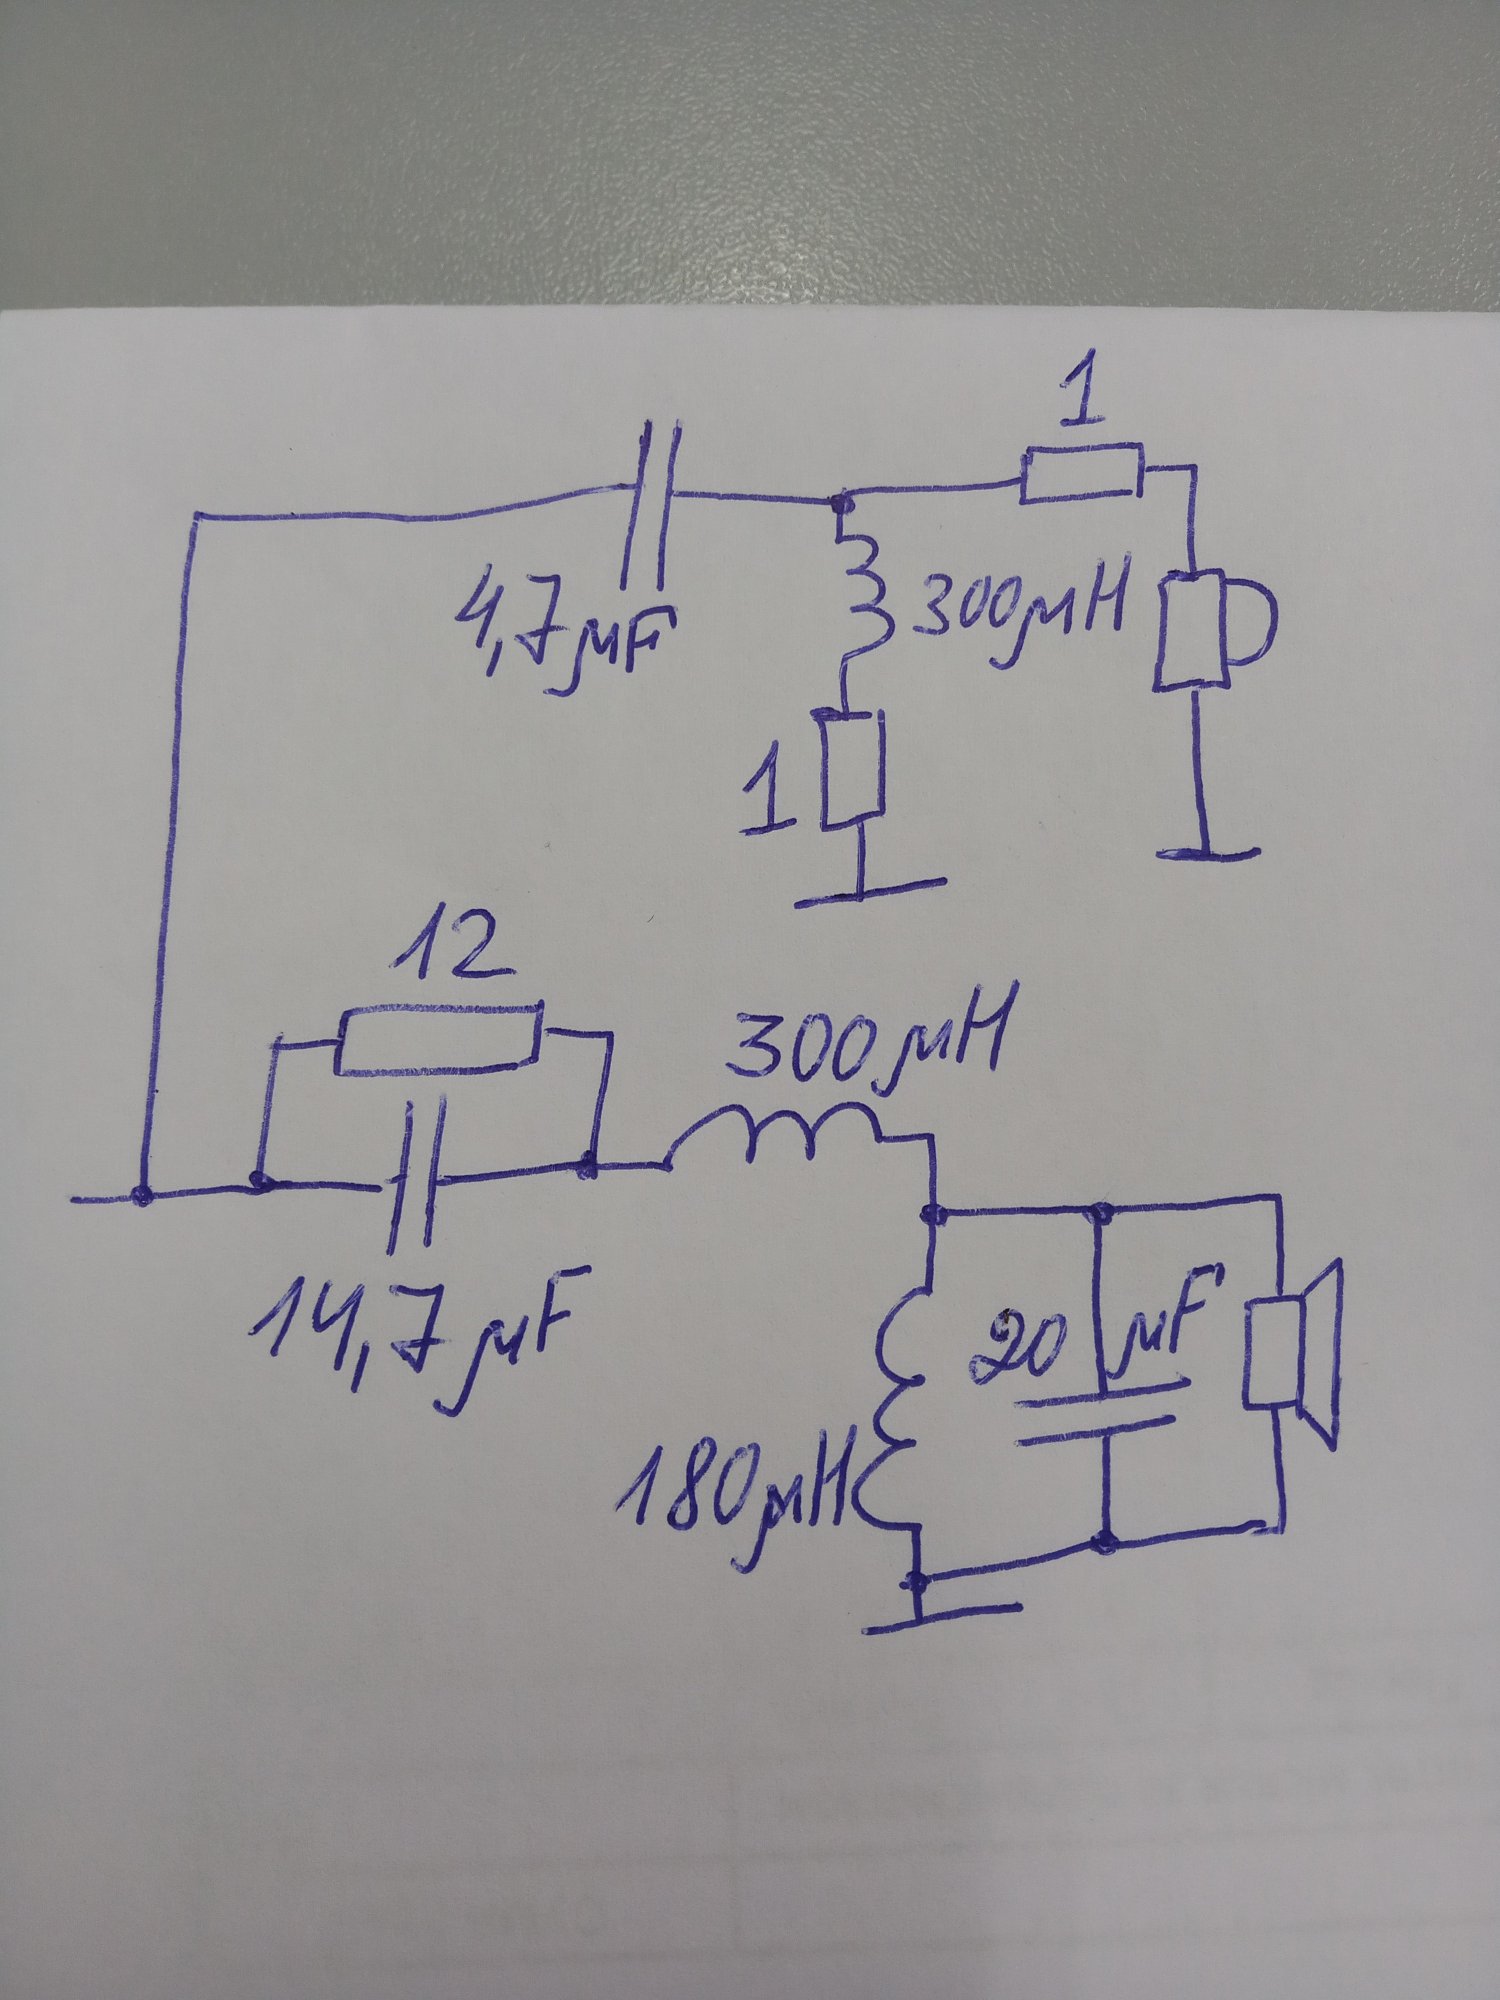 1
4,7μF
300μH
1
12
300μH
14,7μF
20 μF
180μH